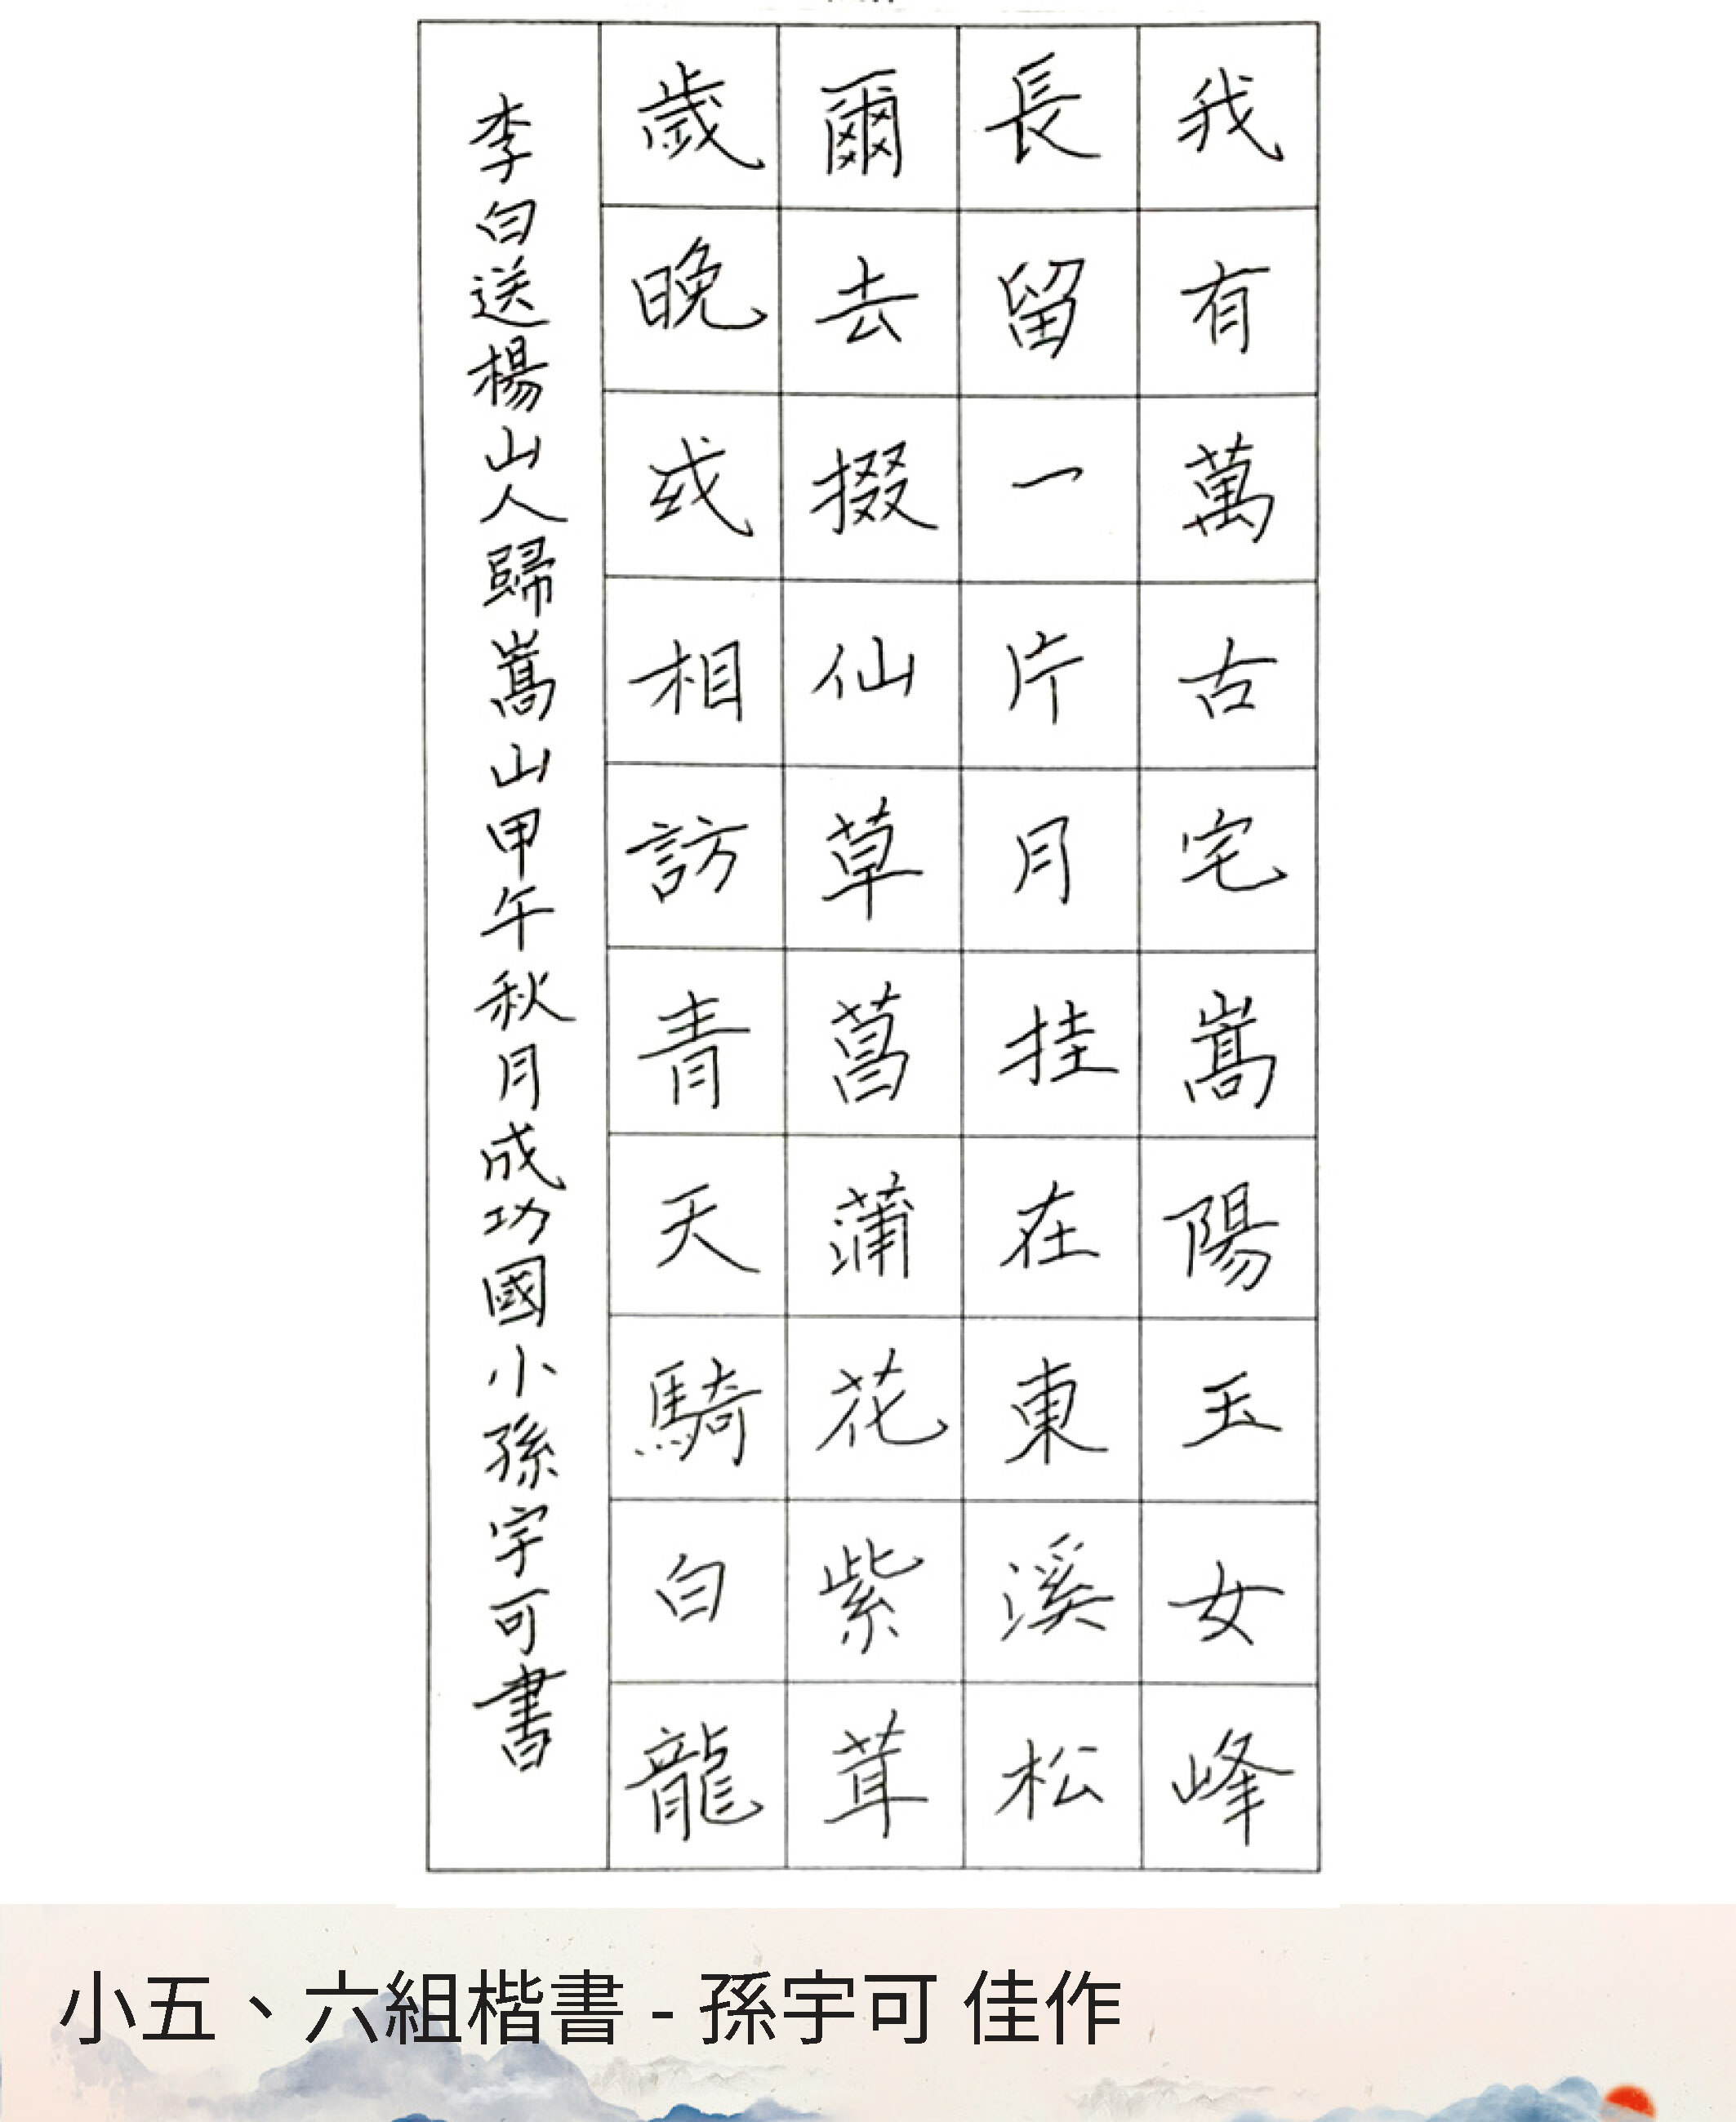 我有萬古宅嵩陽玉女峰
長留一片月挂在東溪松
爾去掇仙草菖蒲花紫茸
歲晚或相訪青天騎白龍
李白送楊山人歸嵩山甲午秋月成功國小孫宇可書
小五、六組楷書 - 孫宇可 佳作